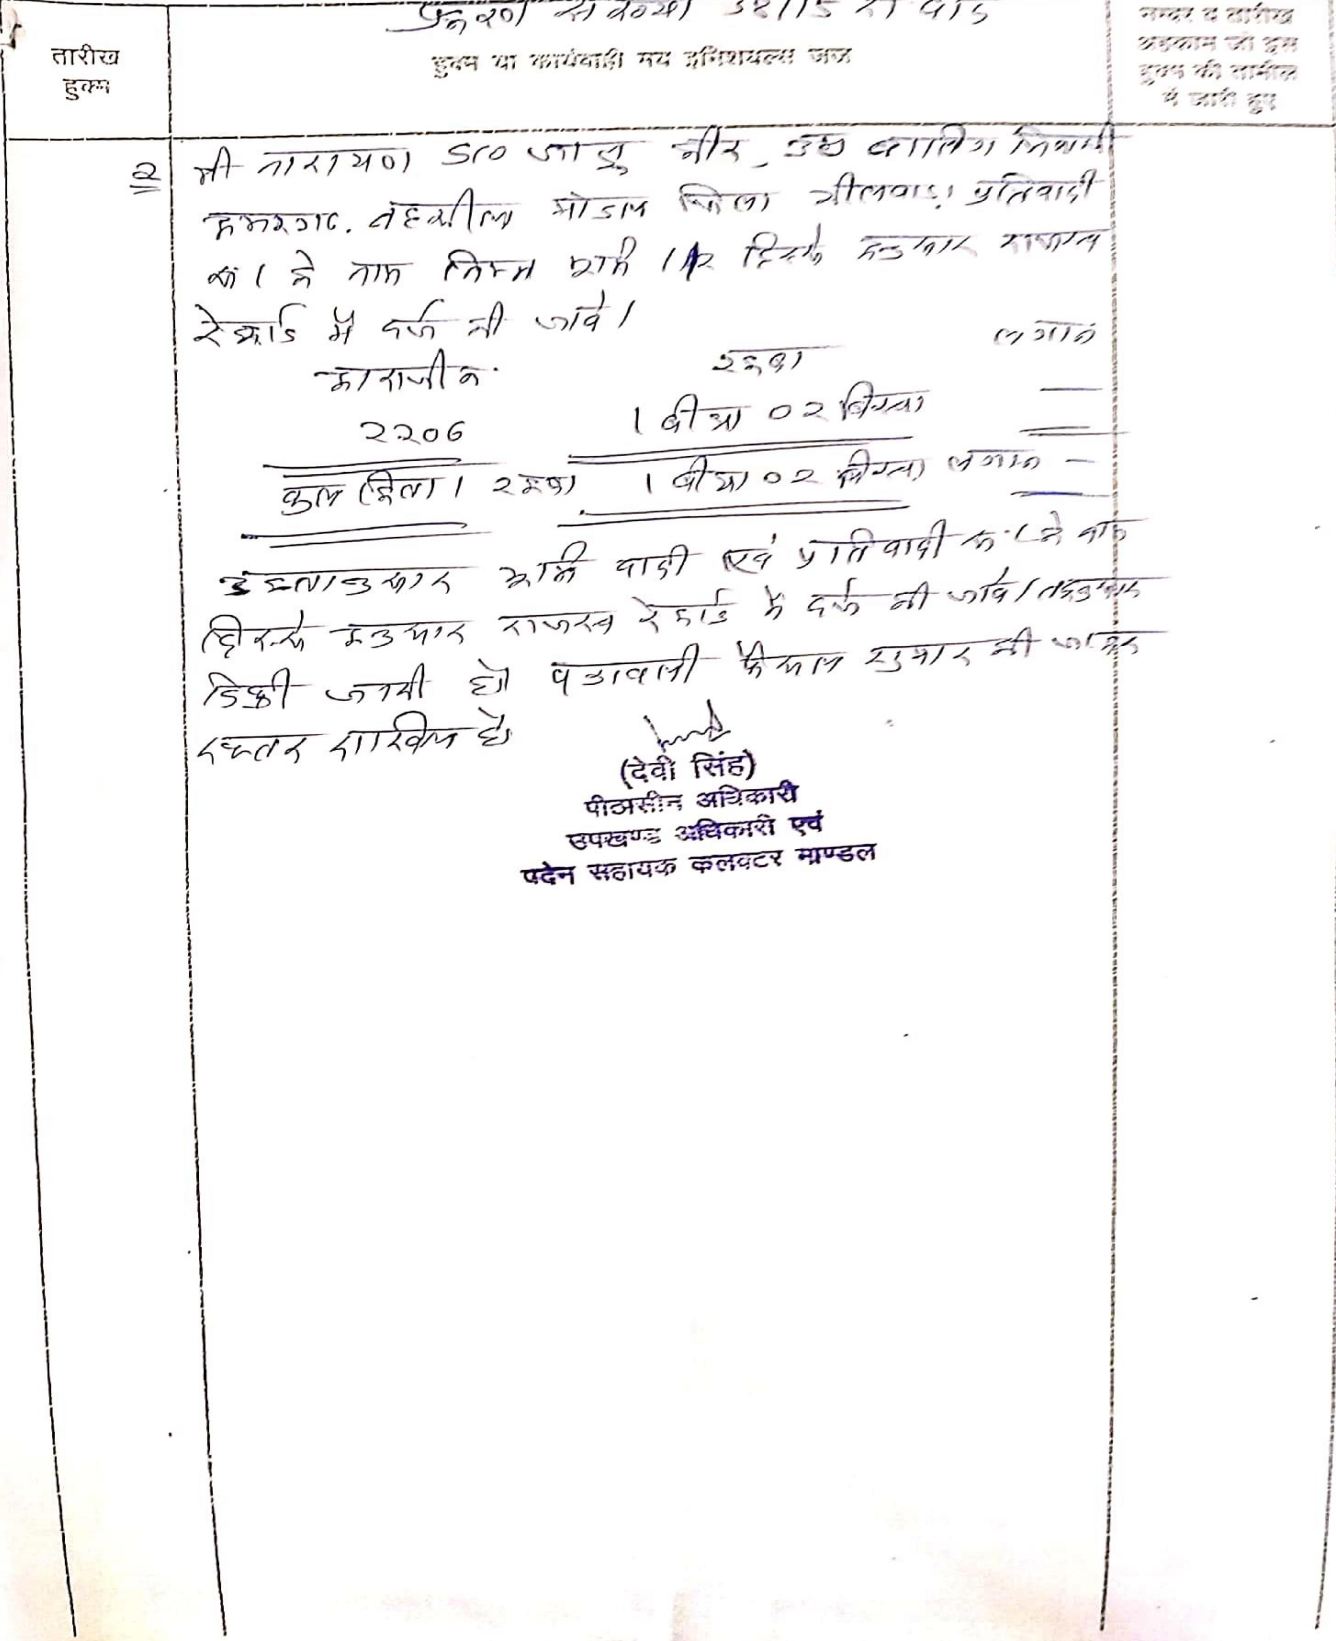 प्रकरण संख्या 38/15 रा वाद
तारीख
हुक्म
हुक्म या कार्यवाही मय इनिशियल्स जज
नम्बर व तारीख
अहकाम जो इस
हुक्म की तामील
में जारी हुए
2 श्री नारायण S/O उम्र बालिग निवासी
तहसील मांडल जिला भीलवाड़ा प्रतिवादी
के नाम निम्न 1/2 हिस्से अनुसार राजस्व
रेकार्ड में दर्ज की जावे।
आराजी न. रकबा लगान
2206 1 बीघा 02 बिस्वा —
कुल किता 1 रकबा 1 बीघा 02 बिस्वा लगान —
वादी एवं प्रतिवादी के नाम
हिस्से अनुसार राजस्व रेकार्ड में दर्ज की जावे। तदनुसार
डिक्री जारी हो पत्रावली फैसल शुमार की जाकर
दफ्तर दाखिल हो
(देवी सिंह)
पीठासीन अधिकारी
उपखण्ड अधिकारी एवं
पदेन सहायक कलक्टर माण्डल